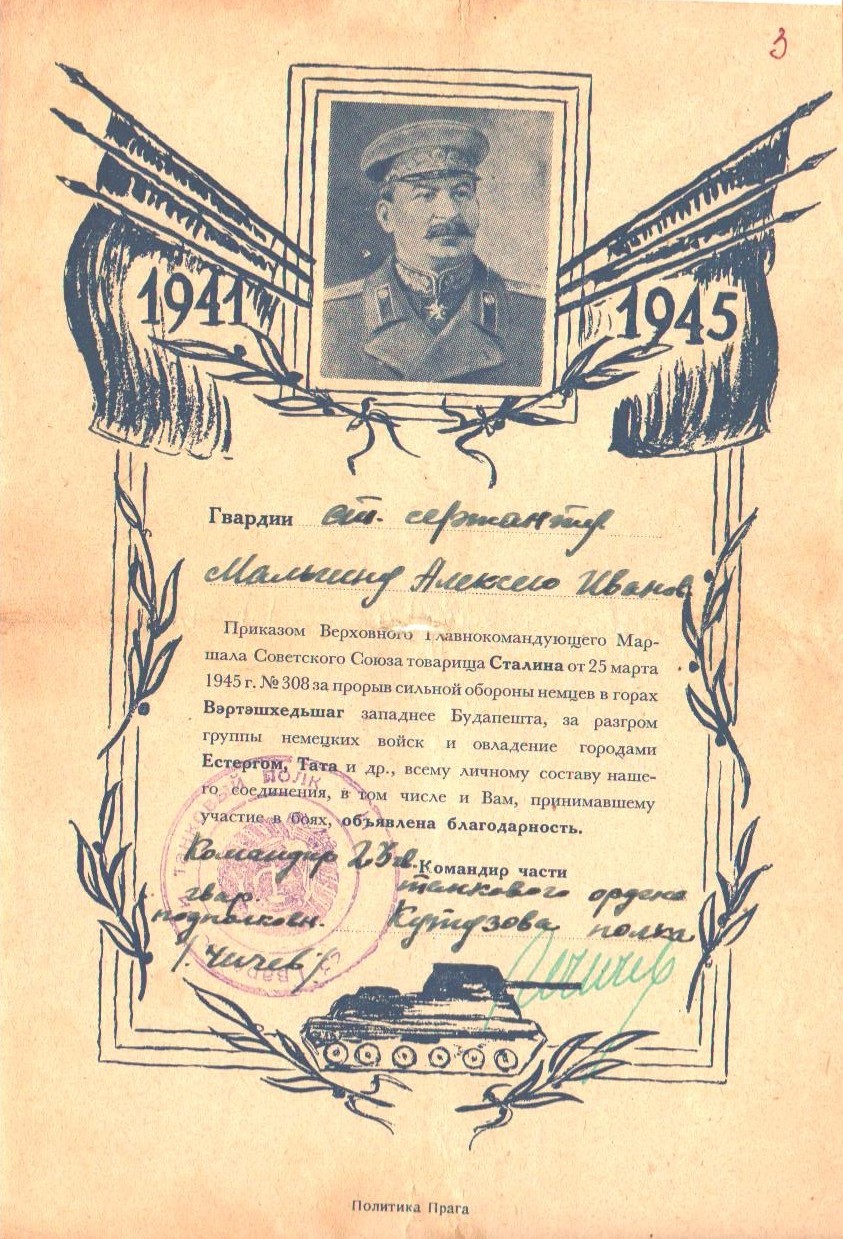 3
1941 1945
Гвардии ст. сержанту
Малыгину Алексею Иванов.
Приказом Верховного Главнокомандующего Мар-
шала Советского Союза товарища Сталина от 25 марта
1945 г. № 308 за прорыв сильной обороны немцев в горах
Вэртэшхедьшаг западнее Будапешта, за разгром
группы немецких войск и овладение городами
Естергом, Тата и др., всему личному составу наше-
го соединения, в том числе и Вам, принимавшему
участие в боях, объявлена благодарность.
Командир 23 гв.
Командир части
гвар. танкового ордена
подполковн. Кутузова полка
/Чичев/
ТАНКОВЫЙ ПОЛК
Политика Прага